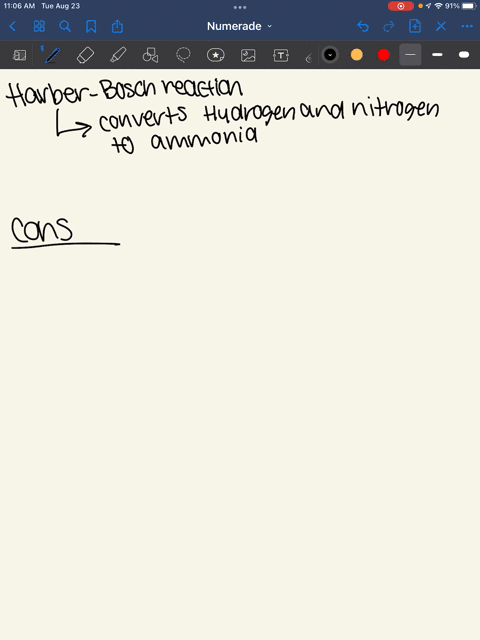 11:06 AM Tue Aug 23
91%
Numerade
Harber-Bosch reaction
converts Hydrogen and nitrogen
to ammonia
cons